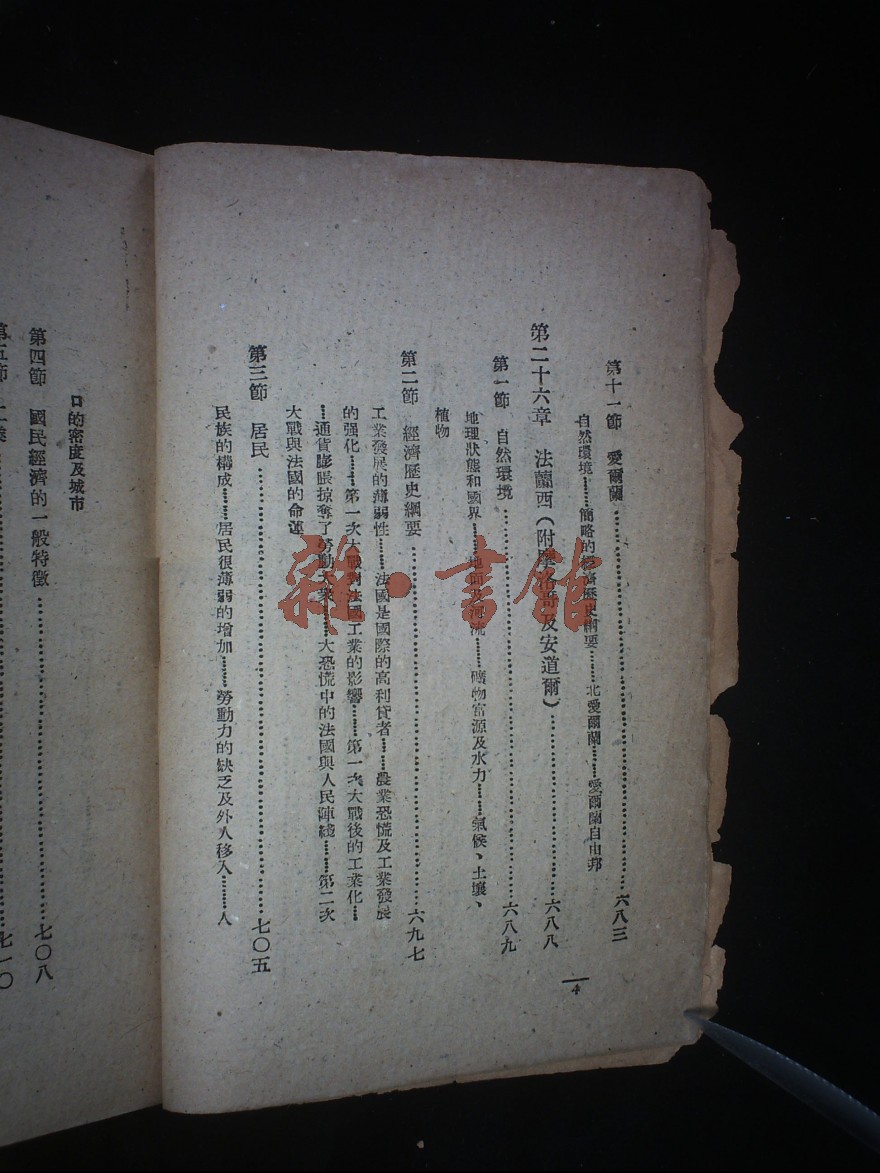 第十一節　愛爾蘭…………六八三
自然環境……簡略的經濟歷史綱要……北愛爾蘭……愛爾蘭自由邦
第二十六章　法蘭西(附摩洛哥及安道爾)…………六八八
第一節　自然環境…………六八九
地理狀態和國界……地面及河流……礦物富源及水力……氣候、土壤、
植物
第二節　經濟歷史綱要…………六九七
工業發展的薄弱性……法國是國際的高利貸者……農業恐慌及工業發展
的强化……第一次大戰對法國工業的影響……第一次大戰後的工業化…
…通貨膨脹掠奪了勞動大衆……大恐慌中的法國與人民陣綫……第二次
大戰與法國的命運
第三節　居民…………七〇五
民族的構成……居民很薄弱的增加……勞動力的缺乏及外人移入……人
4
口的密度及城市
第四節　國民經濟的一般特徵…………七〇八
第五節　工業…………七一〇
雜·書館